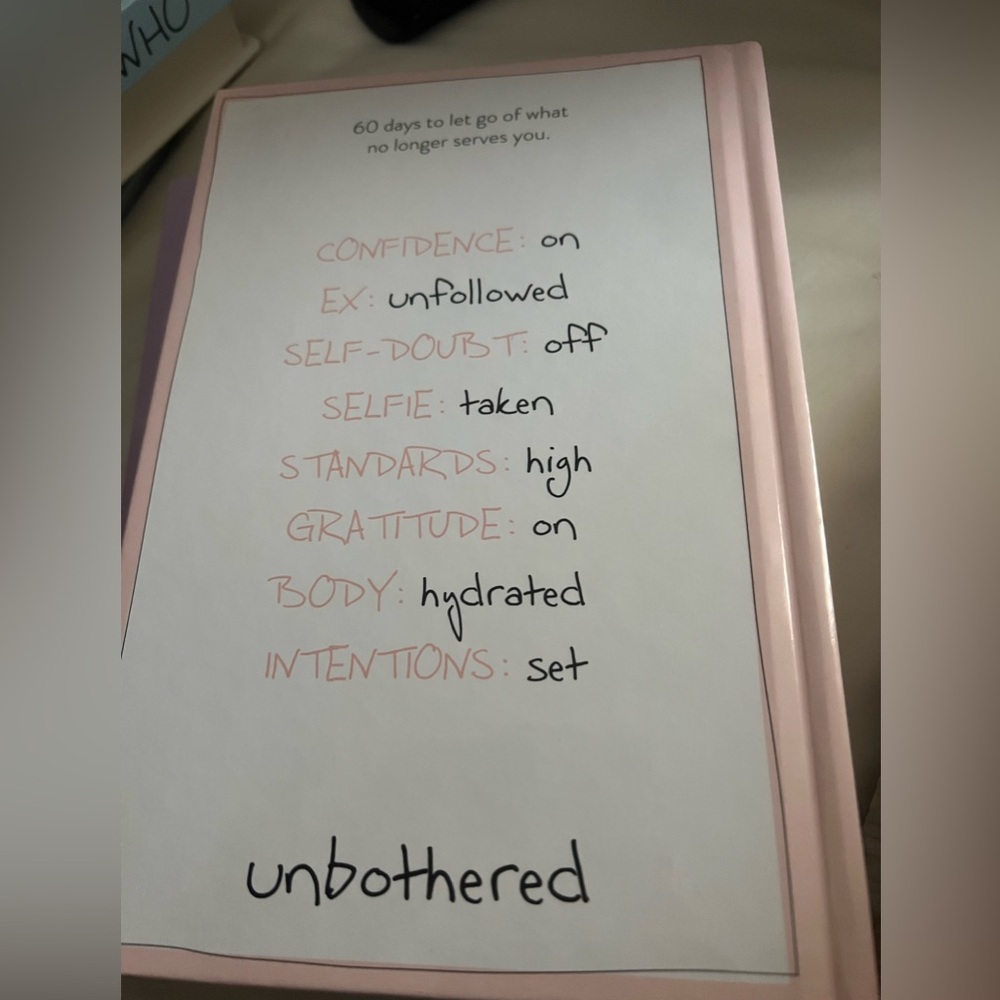 WHO
60 days to let go of what
no longer serves you.
CONFIDENCE: on
EX: unfollowed
SELF-DOUBT: off
SELFIE: taken
STANDARDS: high
GRATITUDE: on
BODY: hydrated
INTENTIONS: set
unbothered